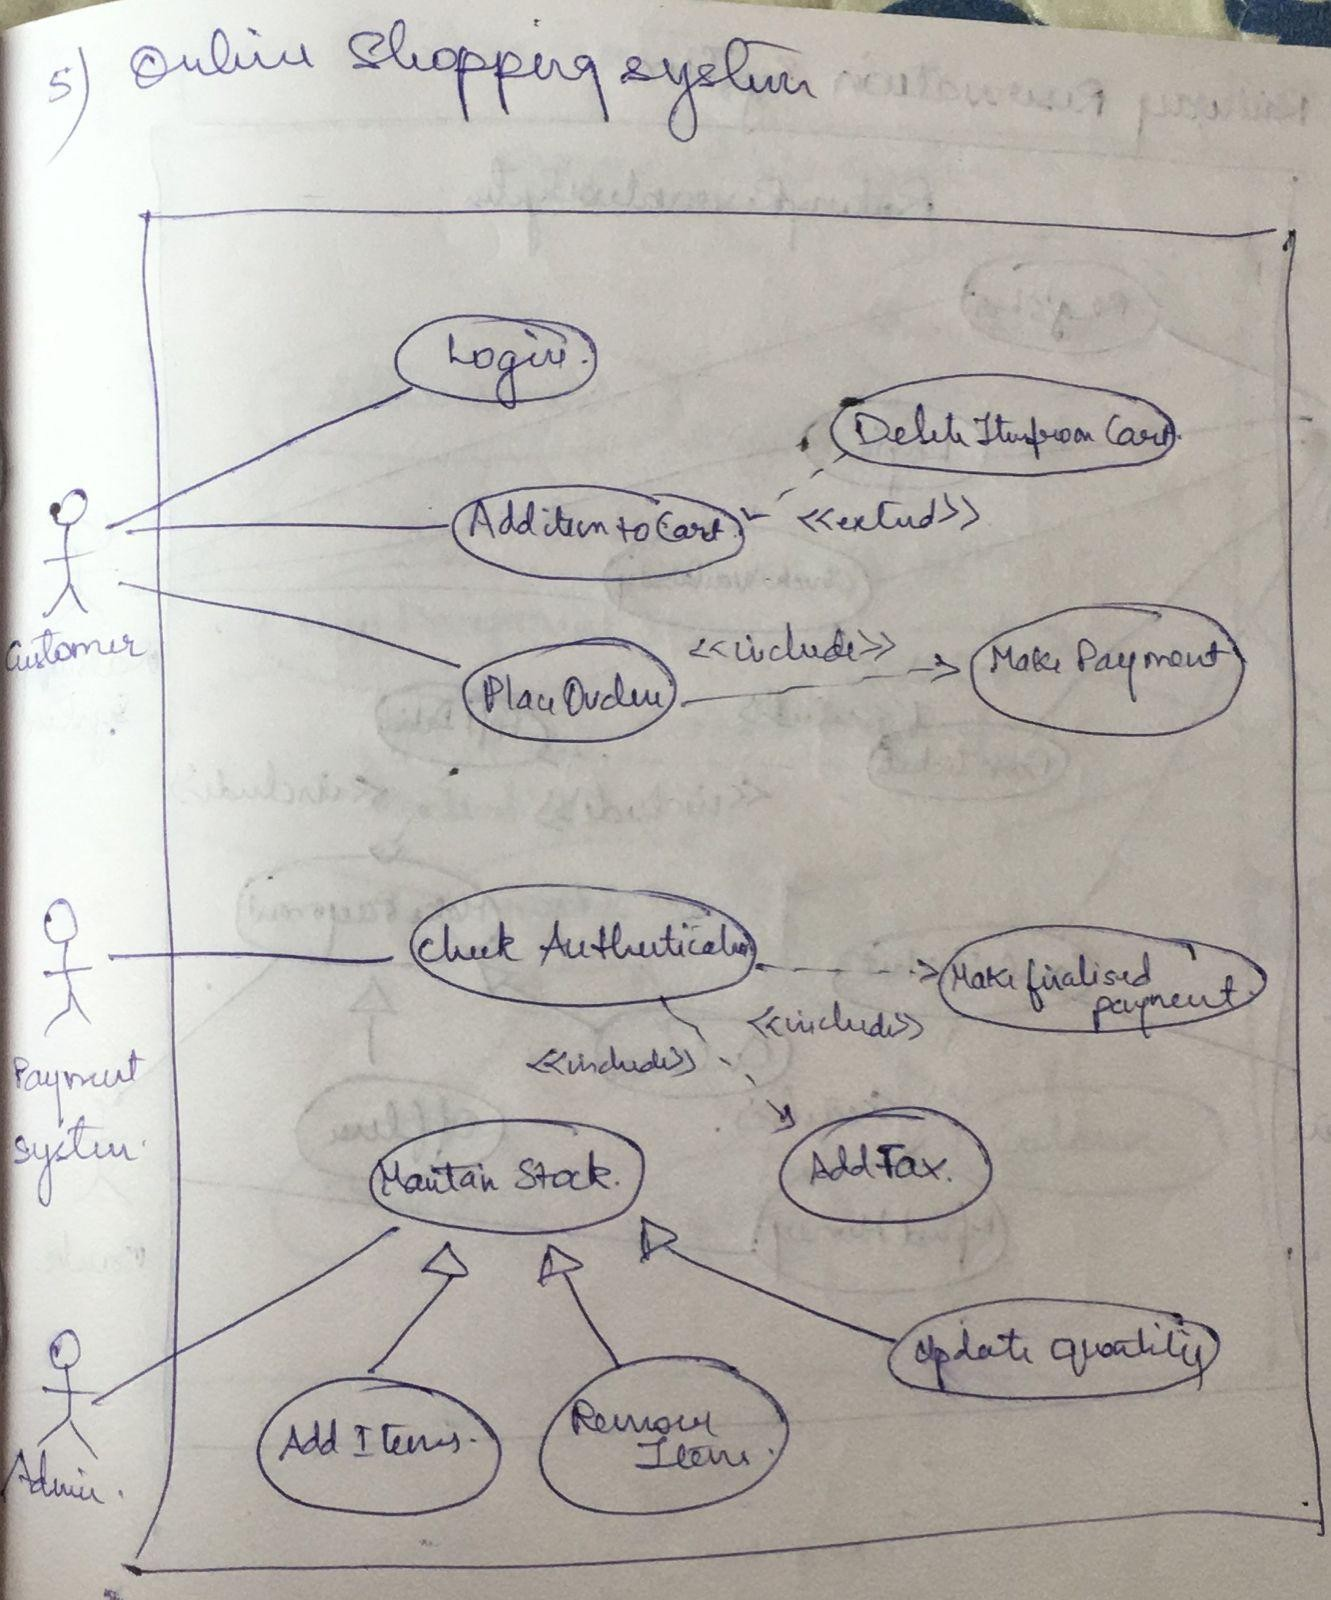 5) Online Shopping system
Login.
Delete Item from Cart.
Add item to Cart.
<<extend>>
Customer
<<include>>
Make Payment
Place Order
Check Authentication
Make finalised
payment.
<<include>>
<<include>>
Payment
system.
Mantain Stock.
Add Tax.
Update quantity
Add Items.
Remove
Item.
Admin.